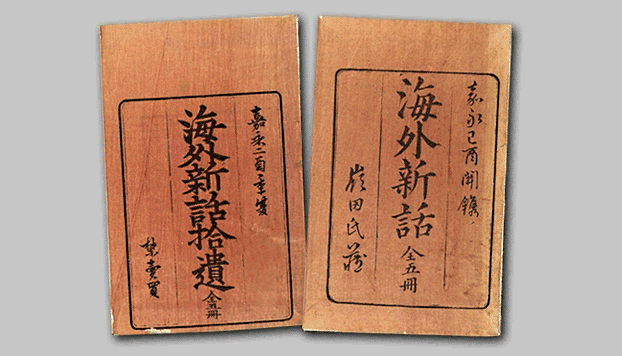 嘉永己酉開鐫
海外新話 全五冊
嶺田氏藏
嘉永二酉
海外新話拾遺 全五冊
禁賣買